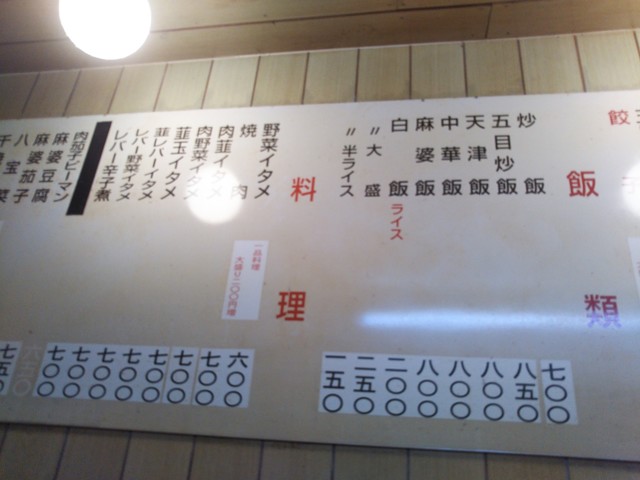 餃
飯類
炒飯
五目炒飯
天津飯
中華飯
麻婆飯
白飯ライス
〃大盛
〃半ライス
七〇〇
八五〇
八〇〇
八〇〇
八〇〇
二〇〇
二五〇
一五〇
料理
野菜イタメ
焼肉
肉韮イタメ
肉野菜イタメ
韮玉イタメ
韮レバーイタメ
レバー野菜イタメ
レバー辛子煮
肉茄子ピーマン
麻婆豆腐
麻婆茄子
八宝菜
一品料理
大盛り二〇〇円増
六〇〇
七〇〇
七〇〇
七〇〇
七〇〇
七〇〇
七〇〇
七〇〇
六五〇
七五〇